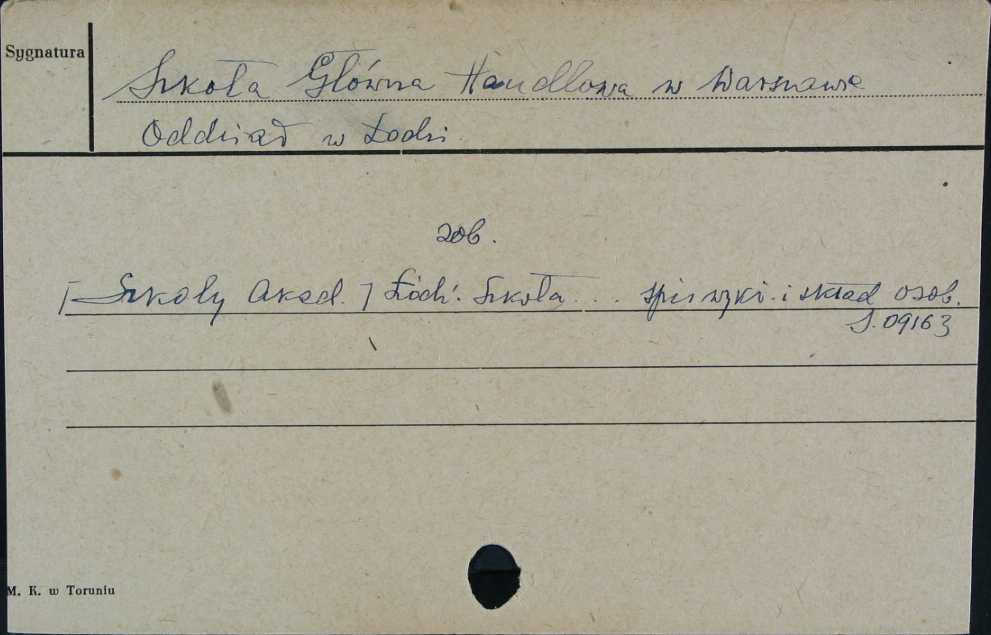 Sygnatura
Szkoła Główna Handlowa w Warszawie
Oddział w Łodzi
zob.
[Szkoły Akad.] Łódź. Szkoła... spis wykł. i skład osob.
S. 09163
M. K. w Toruniu